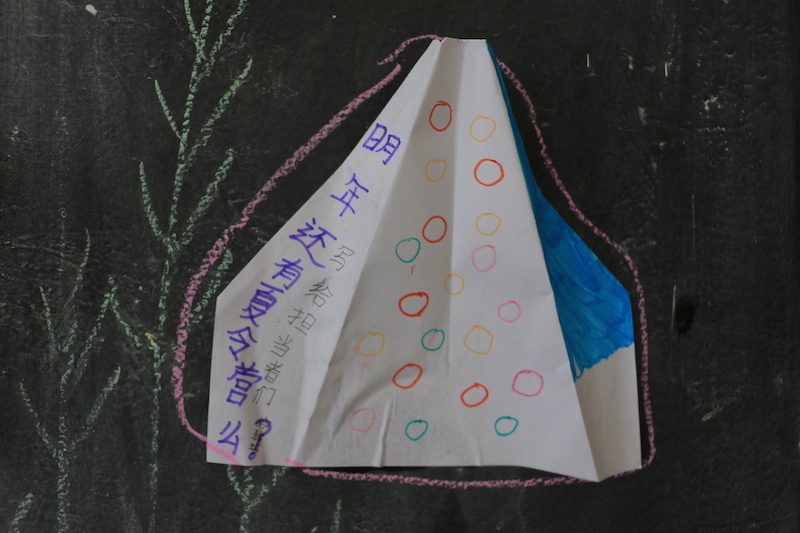 明年还有夏令营么？
写给担当者们